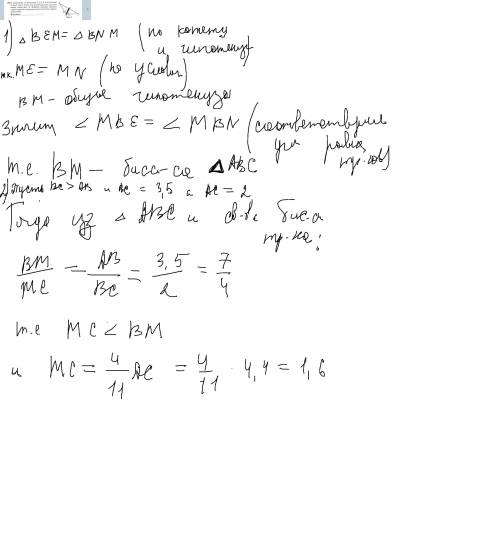 1) △ BEM = △ BNM (по катету
и гипотенузе)
т.к. ME = MN (по условию)
BM - общая гипотенуза
Значит ∠MBE = ∠MBN (соответств
для равных
тр-ков)
т.е. BM - бисс-са △ABC
2) Пусть
и
= 3,5 а AC = 2
Тогда из △ ABC и св-ва бис-са
тр-ка:
BM/MC = AB/BC = 3,5/2 = 7/4
т.е MC < BM
и MC = 4/11 AC = 4/11 · 4,4 = 1,6